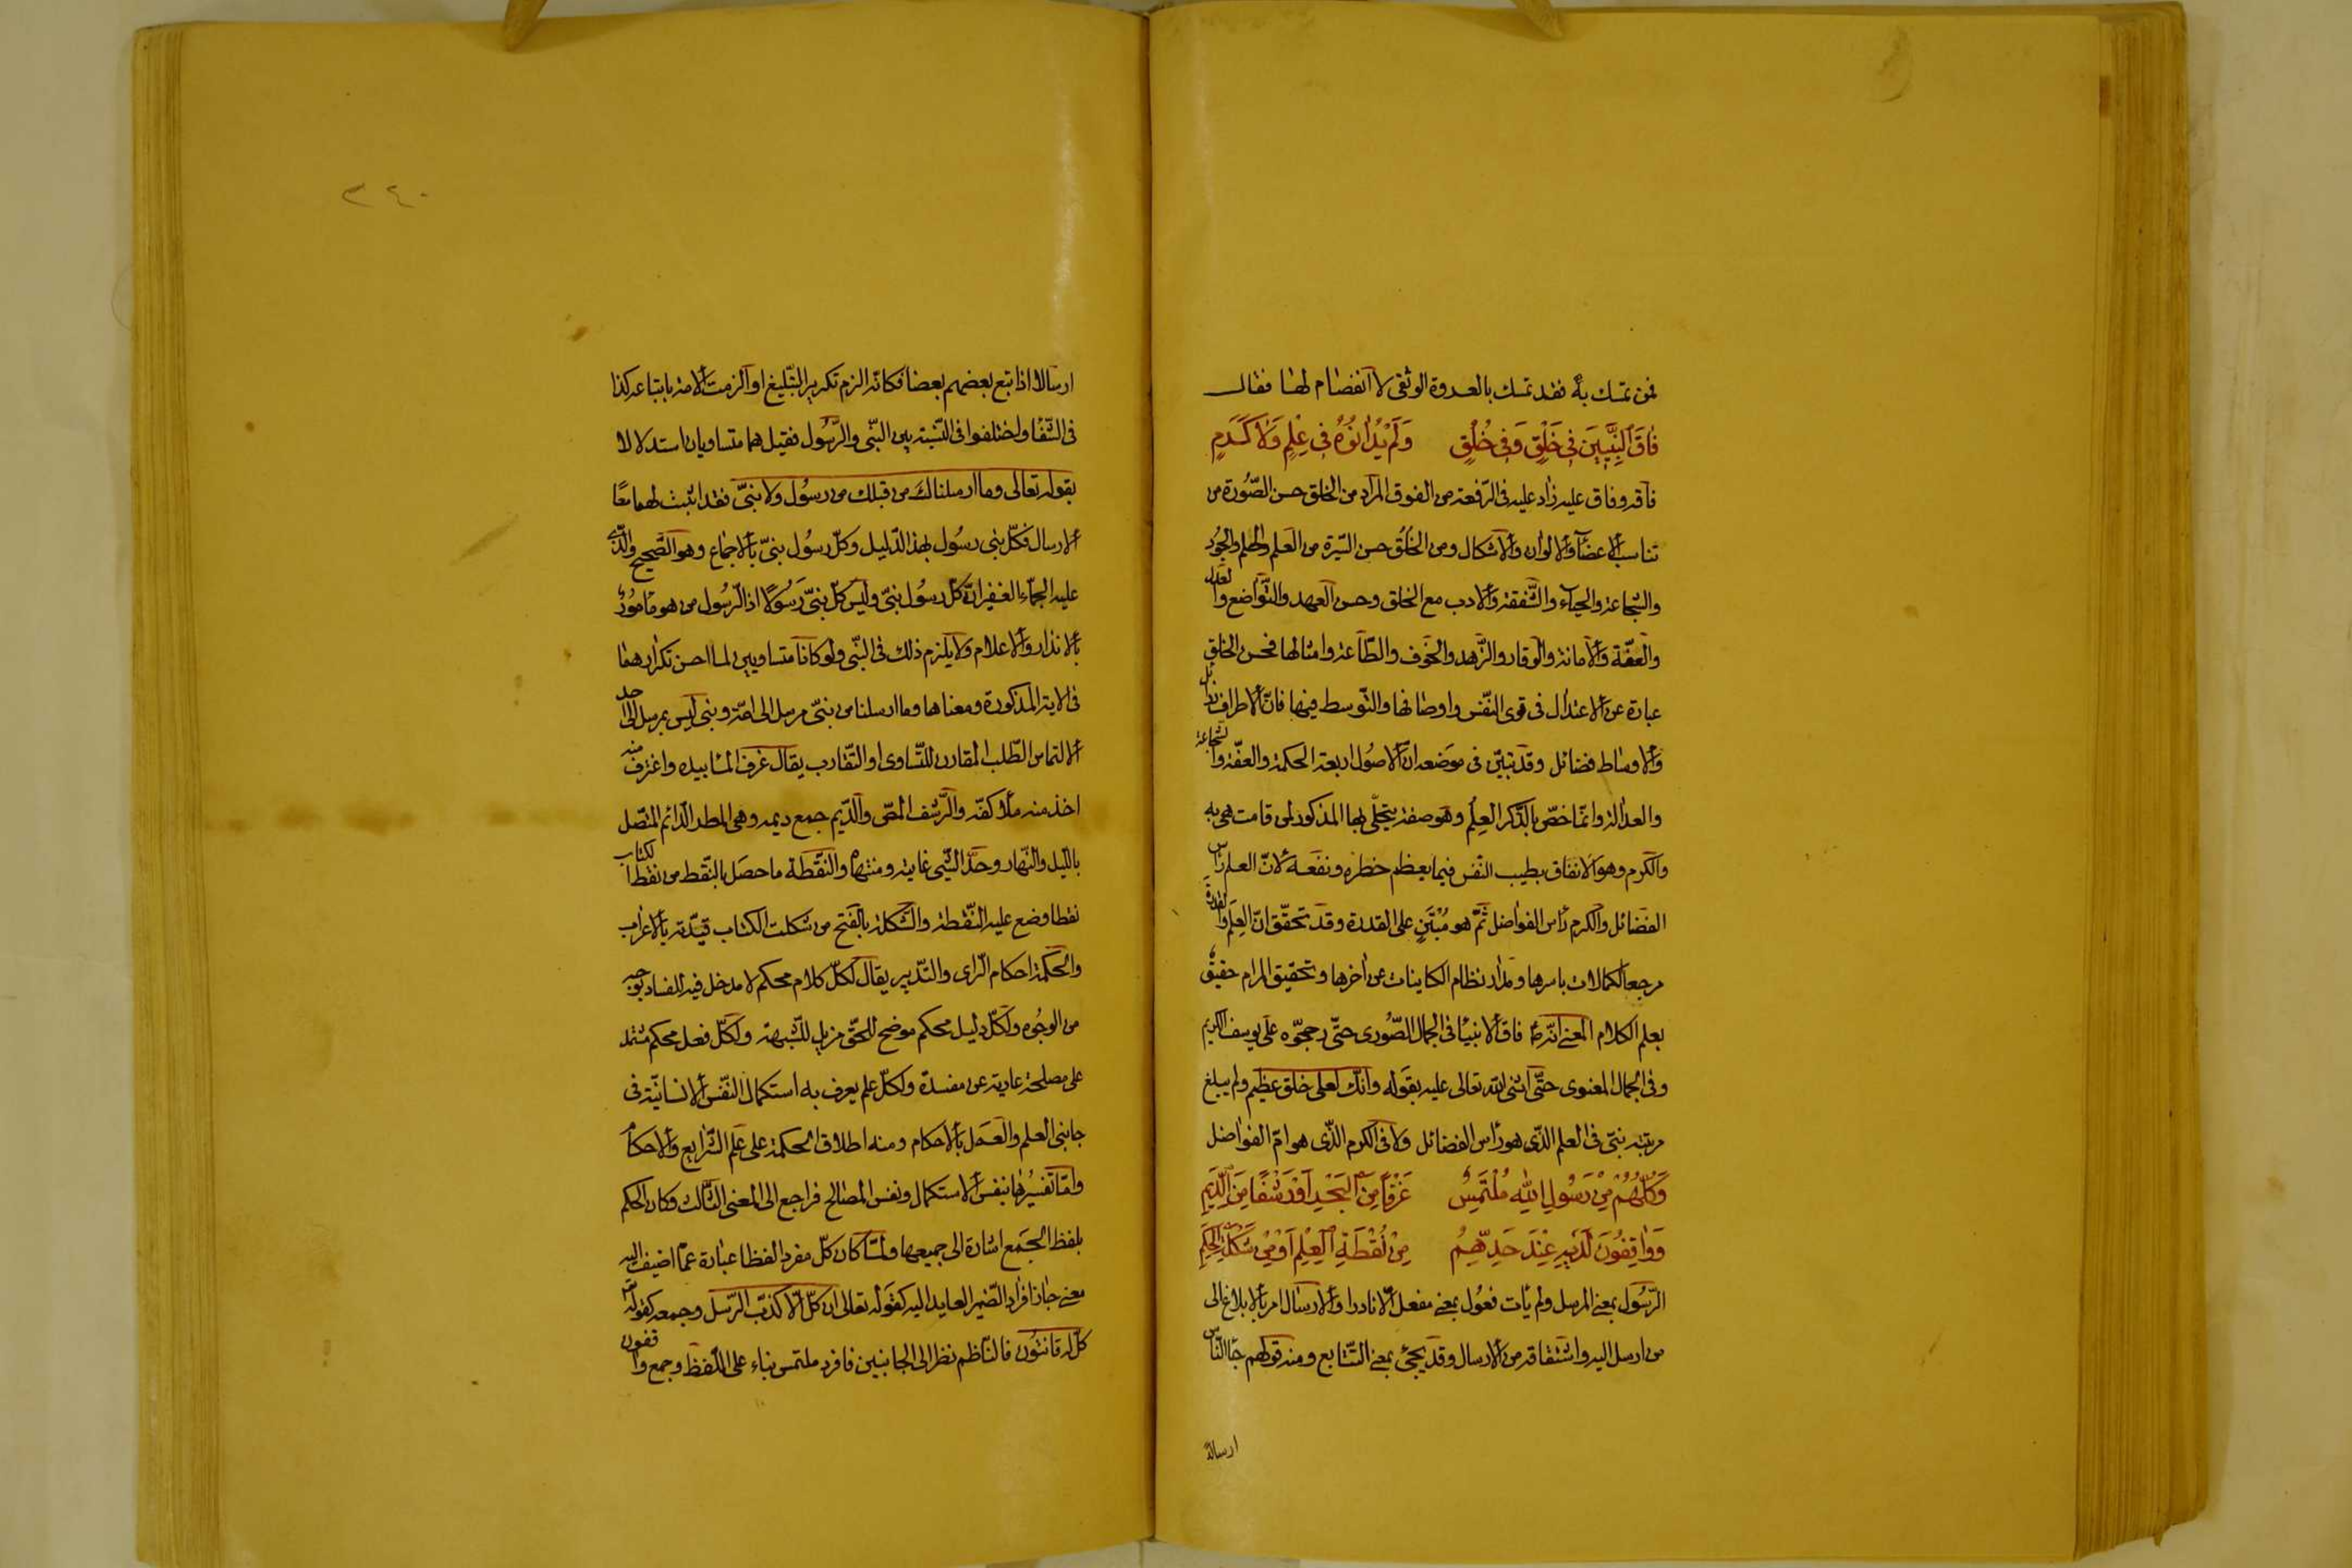 فمن تمسك به فقد تمسك بالعروة الوثقى لا انفصام لها فقال
فَاقَ النَّبِيّينَ فِي خَلْقٍ وَفِي خُلُقٍ وَلَمْ يُدَانُوهُ فِي عِلْمٍ وَلَا كَرَمٍ
فاقه وفاق عليه زاد عليه في الرفعة من الفوق المراد من الخلق حسن الصُّورة من
تناسب الاعضآء والالوان والاشكال ومن الخُلُق حسن السّيرة من العلم والحلم والجُود
والشجاعة والحيآء والشّفقة والادب مع الخلق وحسن العهد والتّواضع والعدل
والعفّة والامانة والوقار والزّهد والخوف والطّاعة وامثالها فحسن الخلق
عبارة عن الاعتدال فى قوى النّفس واوصافها والتّوسط فيها فانّ الاطراف رذائل
والاوساط فضائل وقد تبيّن فى موضعه انّ الاصُول اربعة الحكمة والعفّة والشجاعة
والعدالة وانما خصّ بالذّكر العلم وهو صفة يتجلّى بها المذكور لمن قامت هى به
والكرم وهو الانفاق بطيب النّفس فيما يعظم خطره ونفعه لانّ العلم رأس
الفضائل والكرم رأس الفواضل ثمّ هو مُبْتَنٍ على القدرة وقد تحقّق انّ العلم والقدرة
مرجعا الكمالات باسرها ومدار نظام الكاينات عن اخرها وتحقيق المرام حقيق
بعلم الكلام المعنى انّه فاق الانبيآ فى الجمال الصّورى حتّى رجحّوه على يوسف الكريم
وفى الجمال المعنوى حتّى اثنى الله تعالى عليه بقوله وانّك لعلى خلق عظيم ولم يبلغ
مرتبته نبىّ فى العلم الذّى هو رأس الفضائل ولا فى الكرم الذّى هو امّ الفواضل
وَكُلُّهُمْ مِنْ رَسُولِ اللهِ مُلْتَمِسٌ غَرْفًا مِنَ الْبَحْرِ اَوْ رَشْفًا مِنَ الدِّيَمِ
وَوَاقِفُونَ لَدَيْهِ عِنْدَ حَدِّهِمُ مِنْ نُقْطَةِ الْعِلْمِ اَوْ مِنْ شَكْلَةِ الْحِكَمِ
الرّسُول بمعنى المرسل ولم يأت فعُول بمعنى مفعل الّا نادرا والارسال امر بالابلاغ الى
من ارسل اليه واشتقاقه من الارسال وقد يجئ بمعنى التّتابع ومنه قولهم جآ النّاس
ارسالا
٢٤٠
ارسالا اذا تبع بعضهم بعضا فكانّه الزم تكرير التّبليغ او الزمت الامة باتباعه كذا
فى الشّفا واختلفوا فى النّسبة بين النّبى والرّسُول فقيل هما متساويان استدلالا
بقوله تعالى وما ارسلناكَ من قبلك من رسُول ولا نبىّ فقد اثبث لهما معًا
الارسال فكلّ نبى رسُول بهذا الدّليل وكلّ رسُول نبىّ بالاجماع وهو الصّحيح والّذى
عليه الجمّاء الغفير انّ كلّ رسُول نبىّ وليس كلّ نبىّ رَسُولًا اذ الرّسُول من هو مأمُور
بالانذار والاعلام ولا يلزم ذلك فى النّبى ولو كانا متساويين لما احسن تكرارهما
فى الاية المذكورة ومعناها وما ارسلنا من نبىّ مرسل الى امّة ونبى ليس بمرسل الى احد
الالتماس الطّلب المقارن للتّساوى او التّقارب يقال غرف المآ بيده واغترف منه
اخذ منه ملأ كفّه والرّشف المصّ والدّيم جمع ديمه وهى المطر الدّائم المتّصل
بالليل والنّهار وحدّ الشّئ غايته ومنتهاه والنّقطة ما حصَل بالنّقط من نقط الكتاب
نقطا وضع عليه النّقطة والشّكلة بالفتح من شكلت الكتاب قيّدته بالاعراب
والحكمة احكام الرّاى والتّدبير يقال لكلّ كلام محكم لا مدخل فيه للفساد بوجه
من الوجُوه ولكلّ دليل محكم موضح للحقّ مزيل للشّبهة ولكلّ فعل محكم مشتمل
على مصلحة عادية عن مفسدة ولكلّ علم يعرف به استكمال النّفس الانسانيّة فى
جانبى العلم والعمل بالاحكام ومنه اطلاق الحكمة على علم الشّرايع والاحكام
وامّا تفسيرُها بنفس الاستكمال ونفس المصالح فراجع الى المعنى الثّالث وكان الحكم
بلفظ الجمع اشارة الى جميعها ولمّا كان كلّ مفرد لفظا عبارة عمّا اضيف اليه
معنى جاز افراد الضّمير العايد اليه كقوله تعالى ان كلّ الّا كذّب الرّسل وجمعه كقوله
كلّ له قانتُون فالنّاظم نظر الى الجانبين فافرد ملتمس بناء على اللّفظ وجمع واقفون